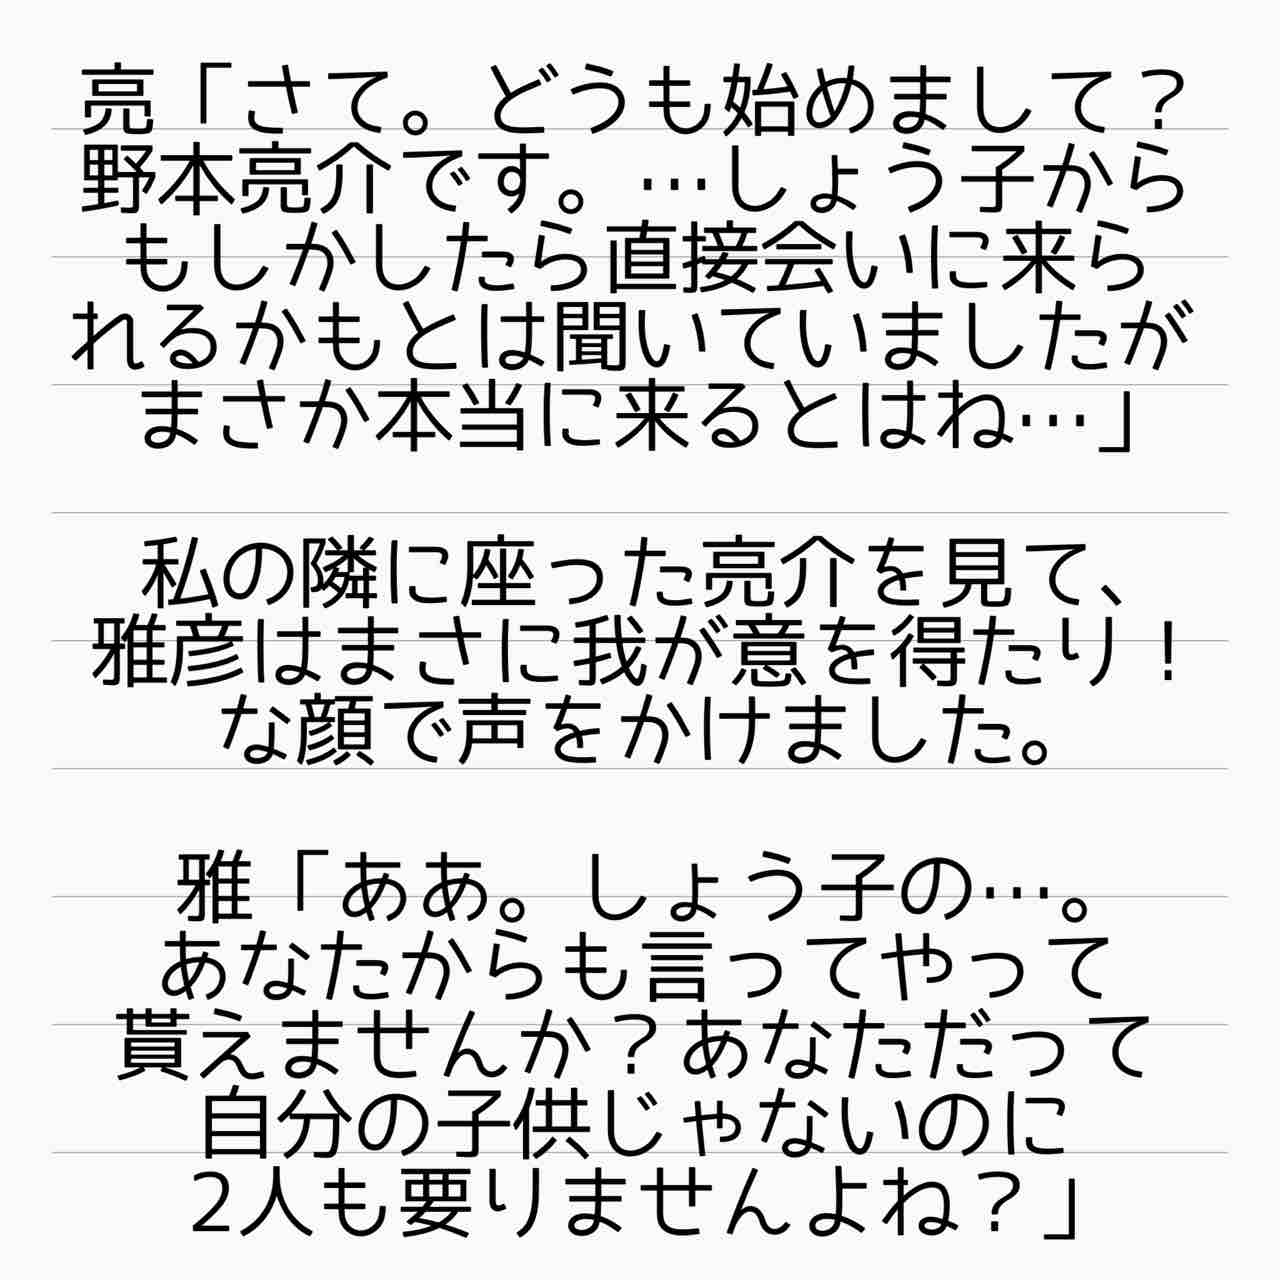 亮「さて。どうも始めまして？
野本亮介です。…しょう子から
もしかしたら直接会いに来ら
れるかもとは聞いていましたが
まさか本当に来るとはね…」
私の隣に座った亮介を見て、
雅彦はまさに我が意を得たり！
な顔で声をかけました。
雅「ああ。しょう子の…。
あなたからも言ってやって
貰えませんか？あなただって
自分の子供じゃないのに
2人も要りませんよね？」